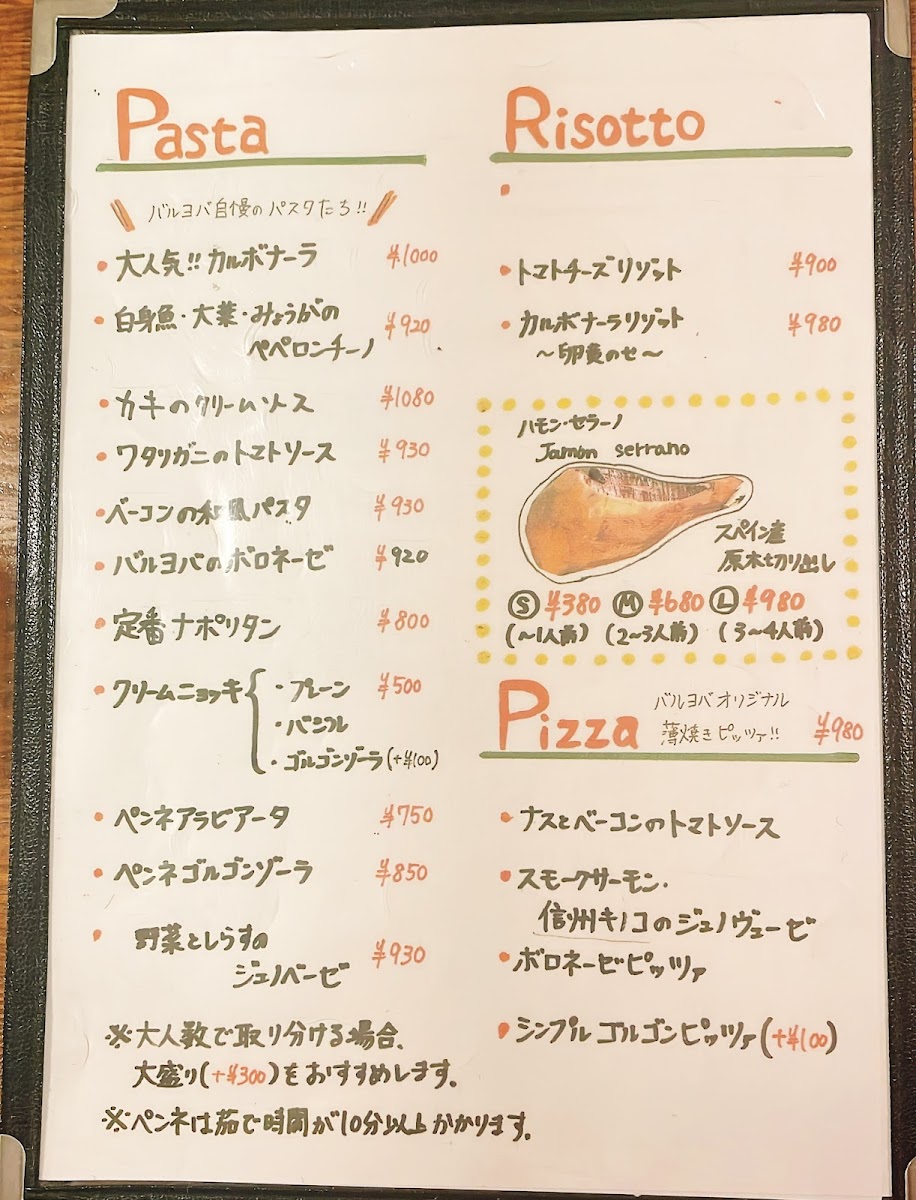 Pasta
バルヨバ自慢のパスタたち!!
・大人気!! カルボナーラ ¥1000
・白身魚・大葉・みょうがの
ペペロンチーノ ¥920
・カキのクリームソース ¥1080
・ワタリガニのトマトソース ¥930
・ベーコンの和風パスタ ¥930
・バルヨバのボロネーゼ ¥920
・定番ナポリタン ¥800
・クリームニョッキ{・プレーン ¥500
・バジル
・ゴルゴンゾーラ(+¥100)
・ペンネアラビアータ ¥750
・ペンネゴルゴンゾーラ ¥850
・野菜としらすの
ジェノベーゼ ¥930
※大人数で取り分ける場合、
大盛り(+¥300)をおすすめします。
※ペンネは茹で時間が10分以上かかります。
Risotto
・トマトチーズリゾット ¥900
・カルボナーラリゾット ¥980
～卵黄のせ～
ハモン・セラーノ
Jamón serrano
スペイン産
原木切り出し
Ⓢ¥380 Ⓜ¥680 Ⓛ¥980
(～1人前) (2～3人前) (3～4人前)
Pizza
バルヨバオリジナル
薄焼きピッツァ!! ¥980
・ナスとベーコンのトマトソース
・スモークサーモン・
信州キノコのジェノヴェーゼ
・ボロネーゼピッツァ
・シンプルゴルゴンピッツァ(+¥100)